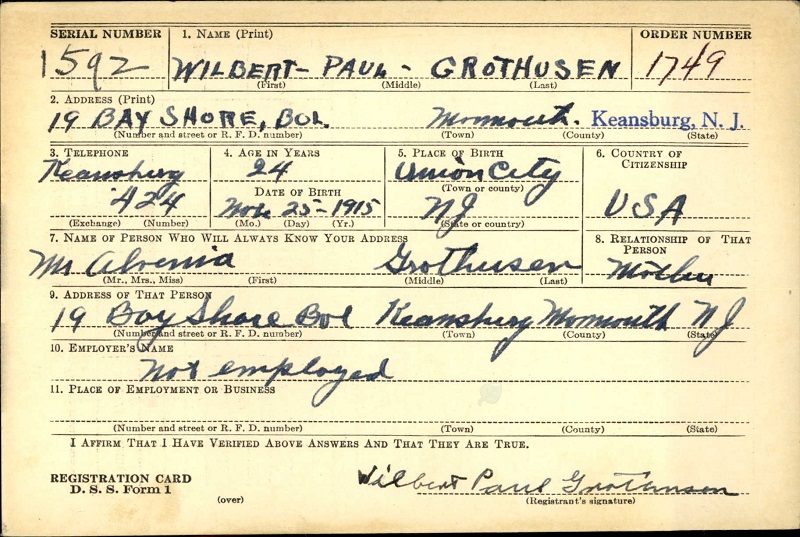 SERIAL NUMBER 1. NAME (Print) ORDER NUMBER
1592 WILBERT- PAUL - GROTHUSEN 1749
(First) (Middle) (Last)
2. ADDRESS (Print)
19 BAY SHORE, BOL. Monmouth. Keansburg, N. J.
(Number and street or R. F. D. number) (Town) (County) (State)
3. TELEPHONE 4. AGE IN YEARS 5. PLACE OF BIRTH 6. COUNTRY OF CITIZENSHIP
Keansburg 24 Union City
(Town or county)
DATE OF BIRTH
424 Nov. 25-1915 NJ USA
(Exchange) (Number) (Mo.) (Day) (Yr.) (State or country)
7. NAME OF PERSON WHO WILL ALWAYS KNOW YOUR ADDRESS 8. RELATIONSHIP OF THAT PERSON
Mr Alvenia Grothusen Mother
(Mr., Mrs., Miss) (First) (Middle) (Last)
9. ADDRESS OF THAT PERSON
19 Bay Shore Bol Keansburg Monmouth NJ
(Number and street or R. F. D. number) (Town) (County) (State)
10. EMPLOYER'S NAME
Not employed
11. PLACE OF EMPLOYMENT OR BUSINESS
(Number and street or R. F. D. number) (Town) (County) (State)
I AFFIRM THAT I HAVE VERIFIED ABOVE ANSWERS AND THAT THEY ARE TRUE.
REGISTRATION CARD
D. S. S. Form 1 Wilbert Paul Grothusen
(over) (Registrant's signature)